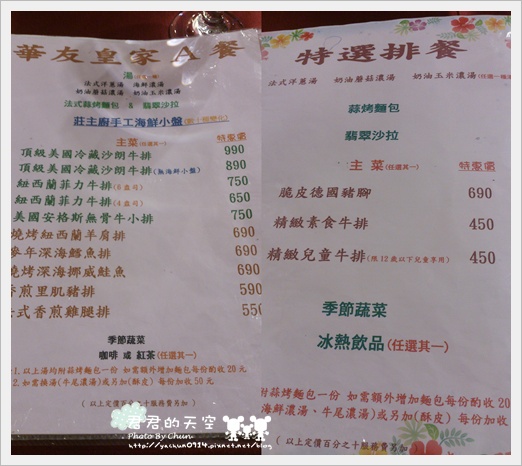 華友皇家A餐
湯(任選一種)
法式洋蔥湯 海鮮濃湯
奶油蘑菇濃湯 奶油玉米濃湯
法式蒜烤麵包 & 翡翠沙拉
莊主廚手工海鮮小盤
主菜(任選其一) 特家價
頂級美國冷藏沙朗牛排 990
頂級美國冷藏沙朗牛排(無海鮮小盤) 890
紐西蘭菲力牛排(6盎司) 750
紐西蘭菲力牛排(4盎司) 650
美國安格斯無骨牛小排 750
燒烤紐西蘭羊肩排 690
多年深海鱈魚排 690
烤深海挪威鮭魚 690
香煎里肌豬排 590
式香煎雞腿排 550
季節蔬菜
咖啡 或 紅茶(任選其一)
1.以上湯均附蒜烤麵包一份 如需額外增加麵包每份酌收20元
2.如需換湯(牛尾濃湯)或另加(酥皮)每份加收50元
(以上定價百分之十服務費另加)
君君的天空
Photo By Chun
http://yuckun0914.pixnet.net/blog
特選排餐
法式洋蔥湯 奶油蘑菇濃湯 奶油玉米濃湯
蒜烤麵包
翡翠沙拉
主菜(任選其一) 特家價
脆皮德國豬腳 690
精緻素食牛排 450
精緻兒童牛排(限12歲以下兒童享用) 450
季節蔬菜
冰熱飲品(任選其一)
附蒜烤麵包一份 如需額外增加麵包每份酌收2
海鮮濃湯、牛尾濃湯)或另加(酥皮)每份加收
(以上定價百分之十服務費另加)